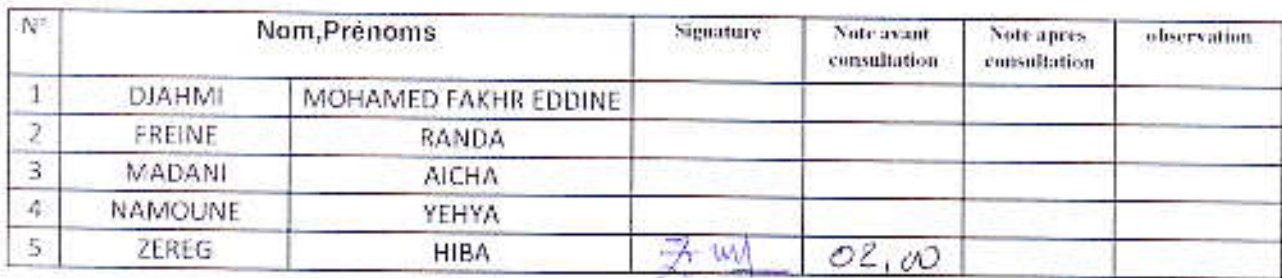 N° Nom,Prénoms Signature Note avant consultation Note apres consultation observation
1 DJAHMI MOHAMED FAKHR EDDINE
2 FREINE RANDA
3 MADANI AICHA
4 NAMOUNE YEHYA
5 ZEREG HIBA 02,00